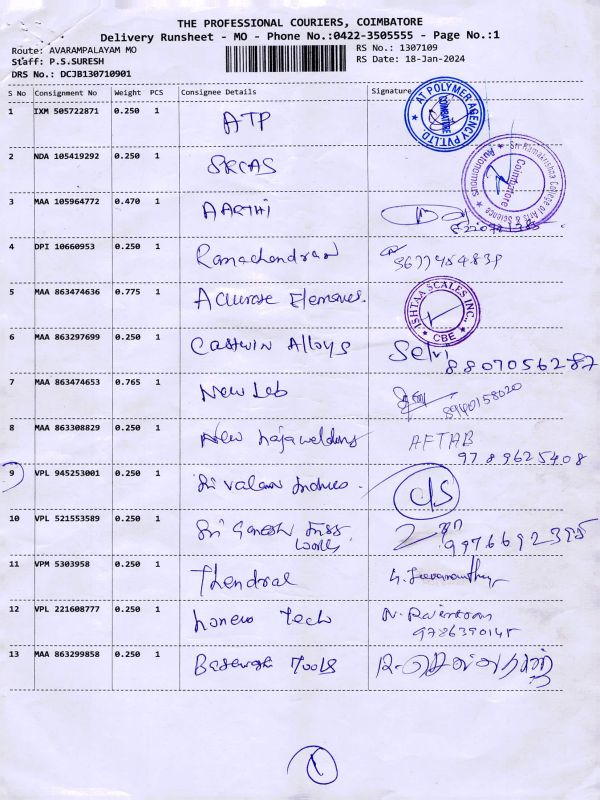 THE PROFESSIONAL COURIERS, COIMBATORE
Delivery Runsheet - MO - Phone No.:0422-3505555 - Page No.:1
Route: AVARAMPALAYAM MO
RS No.: 1307109
Staff: P.S.SURESH
RS Date: 18-Jan-2024
DRS No.: DCJB130710901
S No Consignment No Weight PCS Consignee Details Signature
1 IXM 505722871 0.250 1 ATP AT POLYMER AGENCY PVT.LTD. COIMBATORE
2 NDA 105419292 0.250 1 SRCAS Sri Ramakrishna College of Arts & Science Autonomous Coimbatore
3 MAA 105964772 0.470 1 AARTHI
4 DPI 10660953 0.250 1 Ramachendran
5 MAA 863474636 0.775 1 ISHTAA SCALES INC., CBE
6 MAA 863297699 0.250 1 Castwin Alloys Selvi
8807056287
7 MAA 863474653 0.765 1 New Leb
8940158020
8 MAA 863308829 0.250 1 New AFTAB
9789625408
9 VPL 945253001 0.250 1 Sri Valavan
10 VPL 521553589 0.250 1 Sri Ganesh Works
9976692395
11 VPM 5303958 0.250 1 Thendral
12 VPL 221608777 0.250 1 Tech
13 MAA 863299858 0.250 1 Tools
1